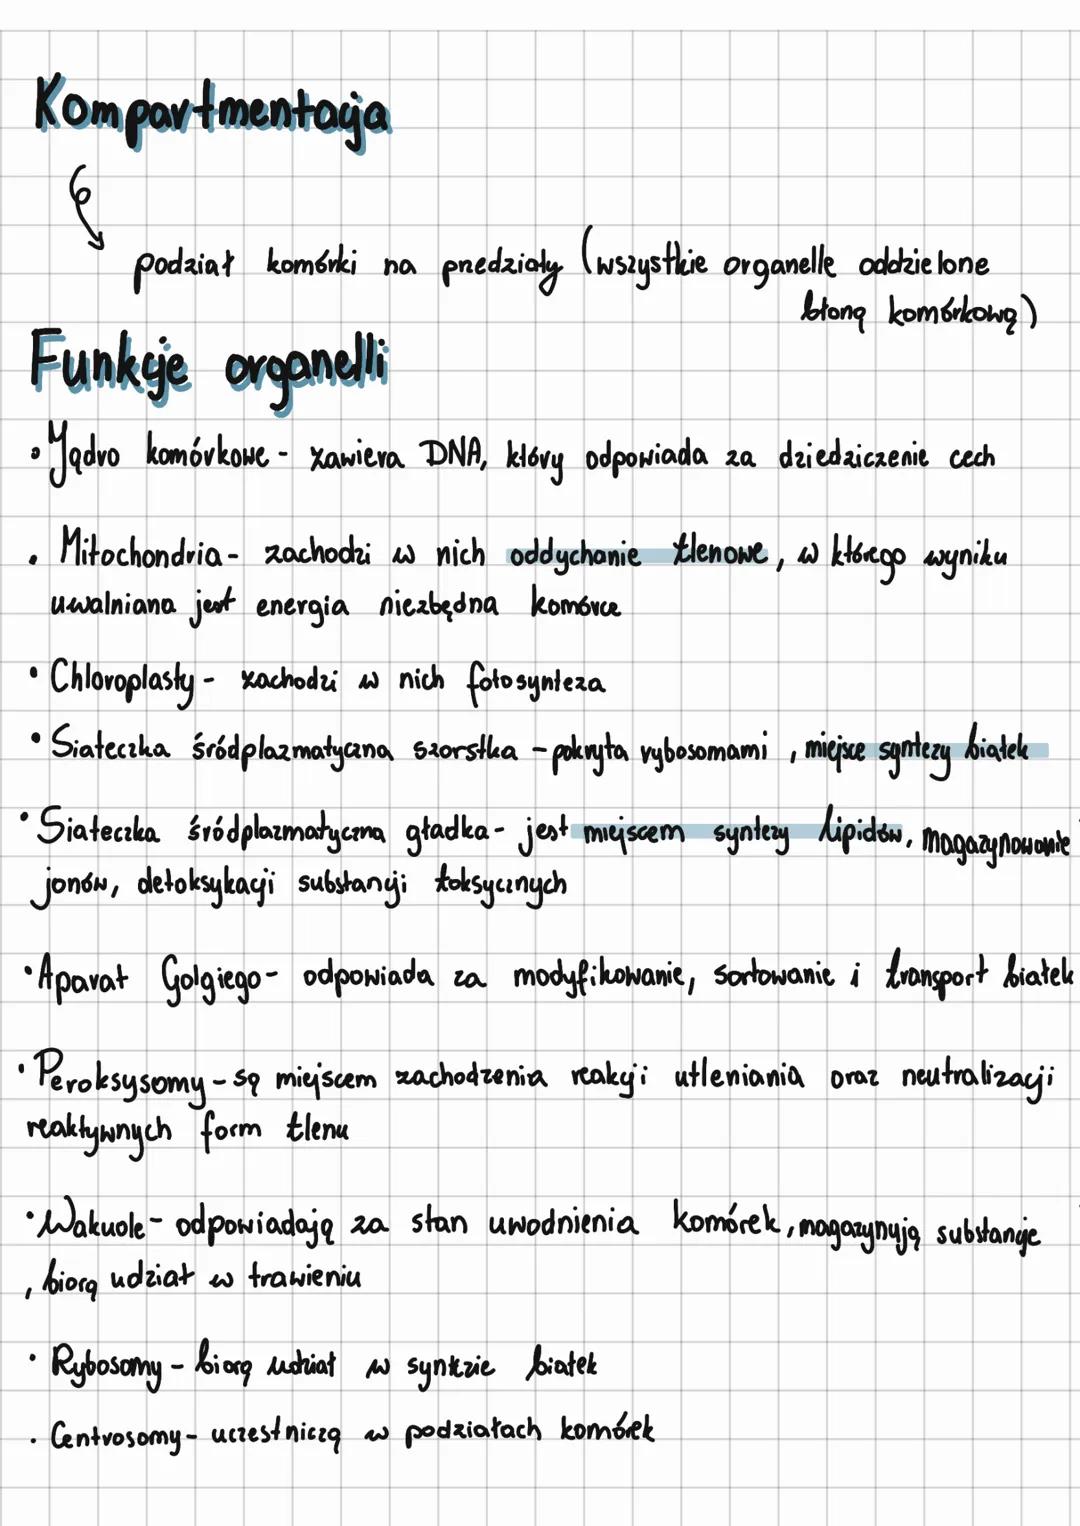 Kompartmentacja
podział komórki na przedziały (wszystkie organelle oddzielone
błoną komórkową)
Funkcje organelli
• Jądro komórkowe - zawiera DNA, który odpowiada za dziedziczenie cech
• Mitochondria - zachodzi w nich oddychanie tlenowe, w którego wyniku
uwalniana jest energia niezbędna komórce
• Chloroplasty - zachodzi w nich fotosynteza
• Siateczka śródplazmatyczna szorstka - pokryta rybosomami, miejsce syntezy białek
• Siateczka śródplazmatyczna gładka - jest miejscem syntezy lipidów, magazynowanie
jonów, detoksykacji substancji toksycznych
• Aparat Golgiego - odpowiada za modyfikowanie, sortowanie i transport białek
• Peroksysomy - są miejscem zachodzenia reakcji utleniania oraz neutralizacji
reaktywnych form tlenu
• Wakuole - odpowiadają za stan uwodnienia komórek, magazynują substancje
, biorą udział w trawieniu
• Rybosomy - biorą udział w syntezie białek
• Centrosomy - uczestniczą w podziałach komórek